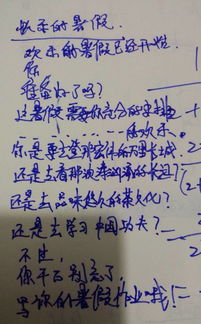 欢乐的暑假.
欢乐的暑假已经开始.
你
准备好了吗?
这暑假需要你充分的来挖
的欢乐。
你是要去登那宏伟的万里长城
还是去看那波涛汹涌的长江?
还是去品味悠久的茶文化?
还是去学习中国功夫?
不过,
你千万别忘了,
写你的暑假作业哦!